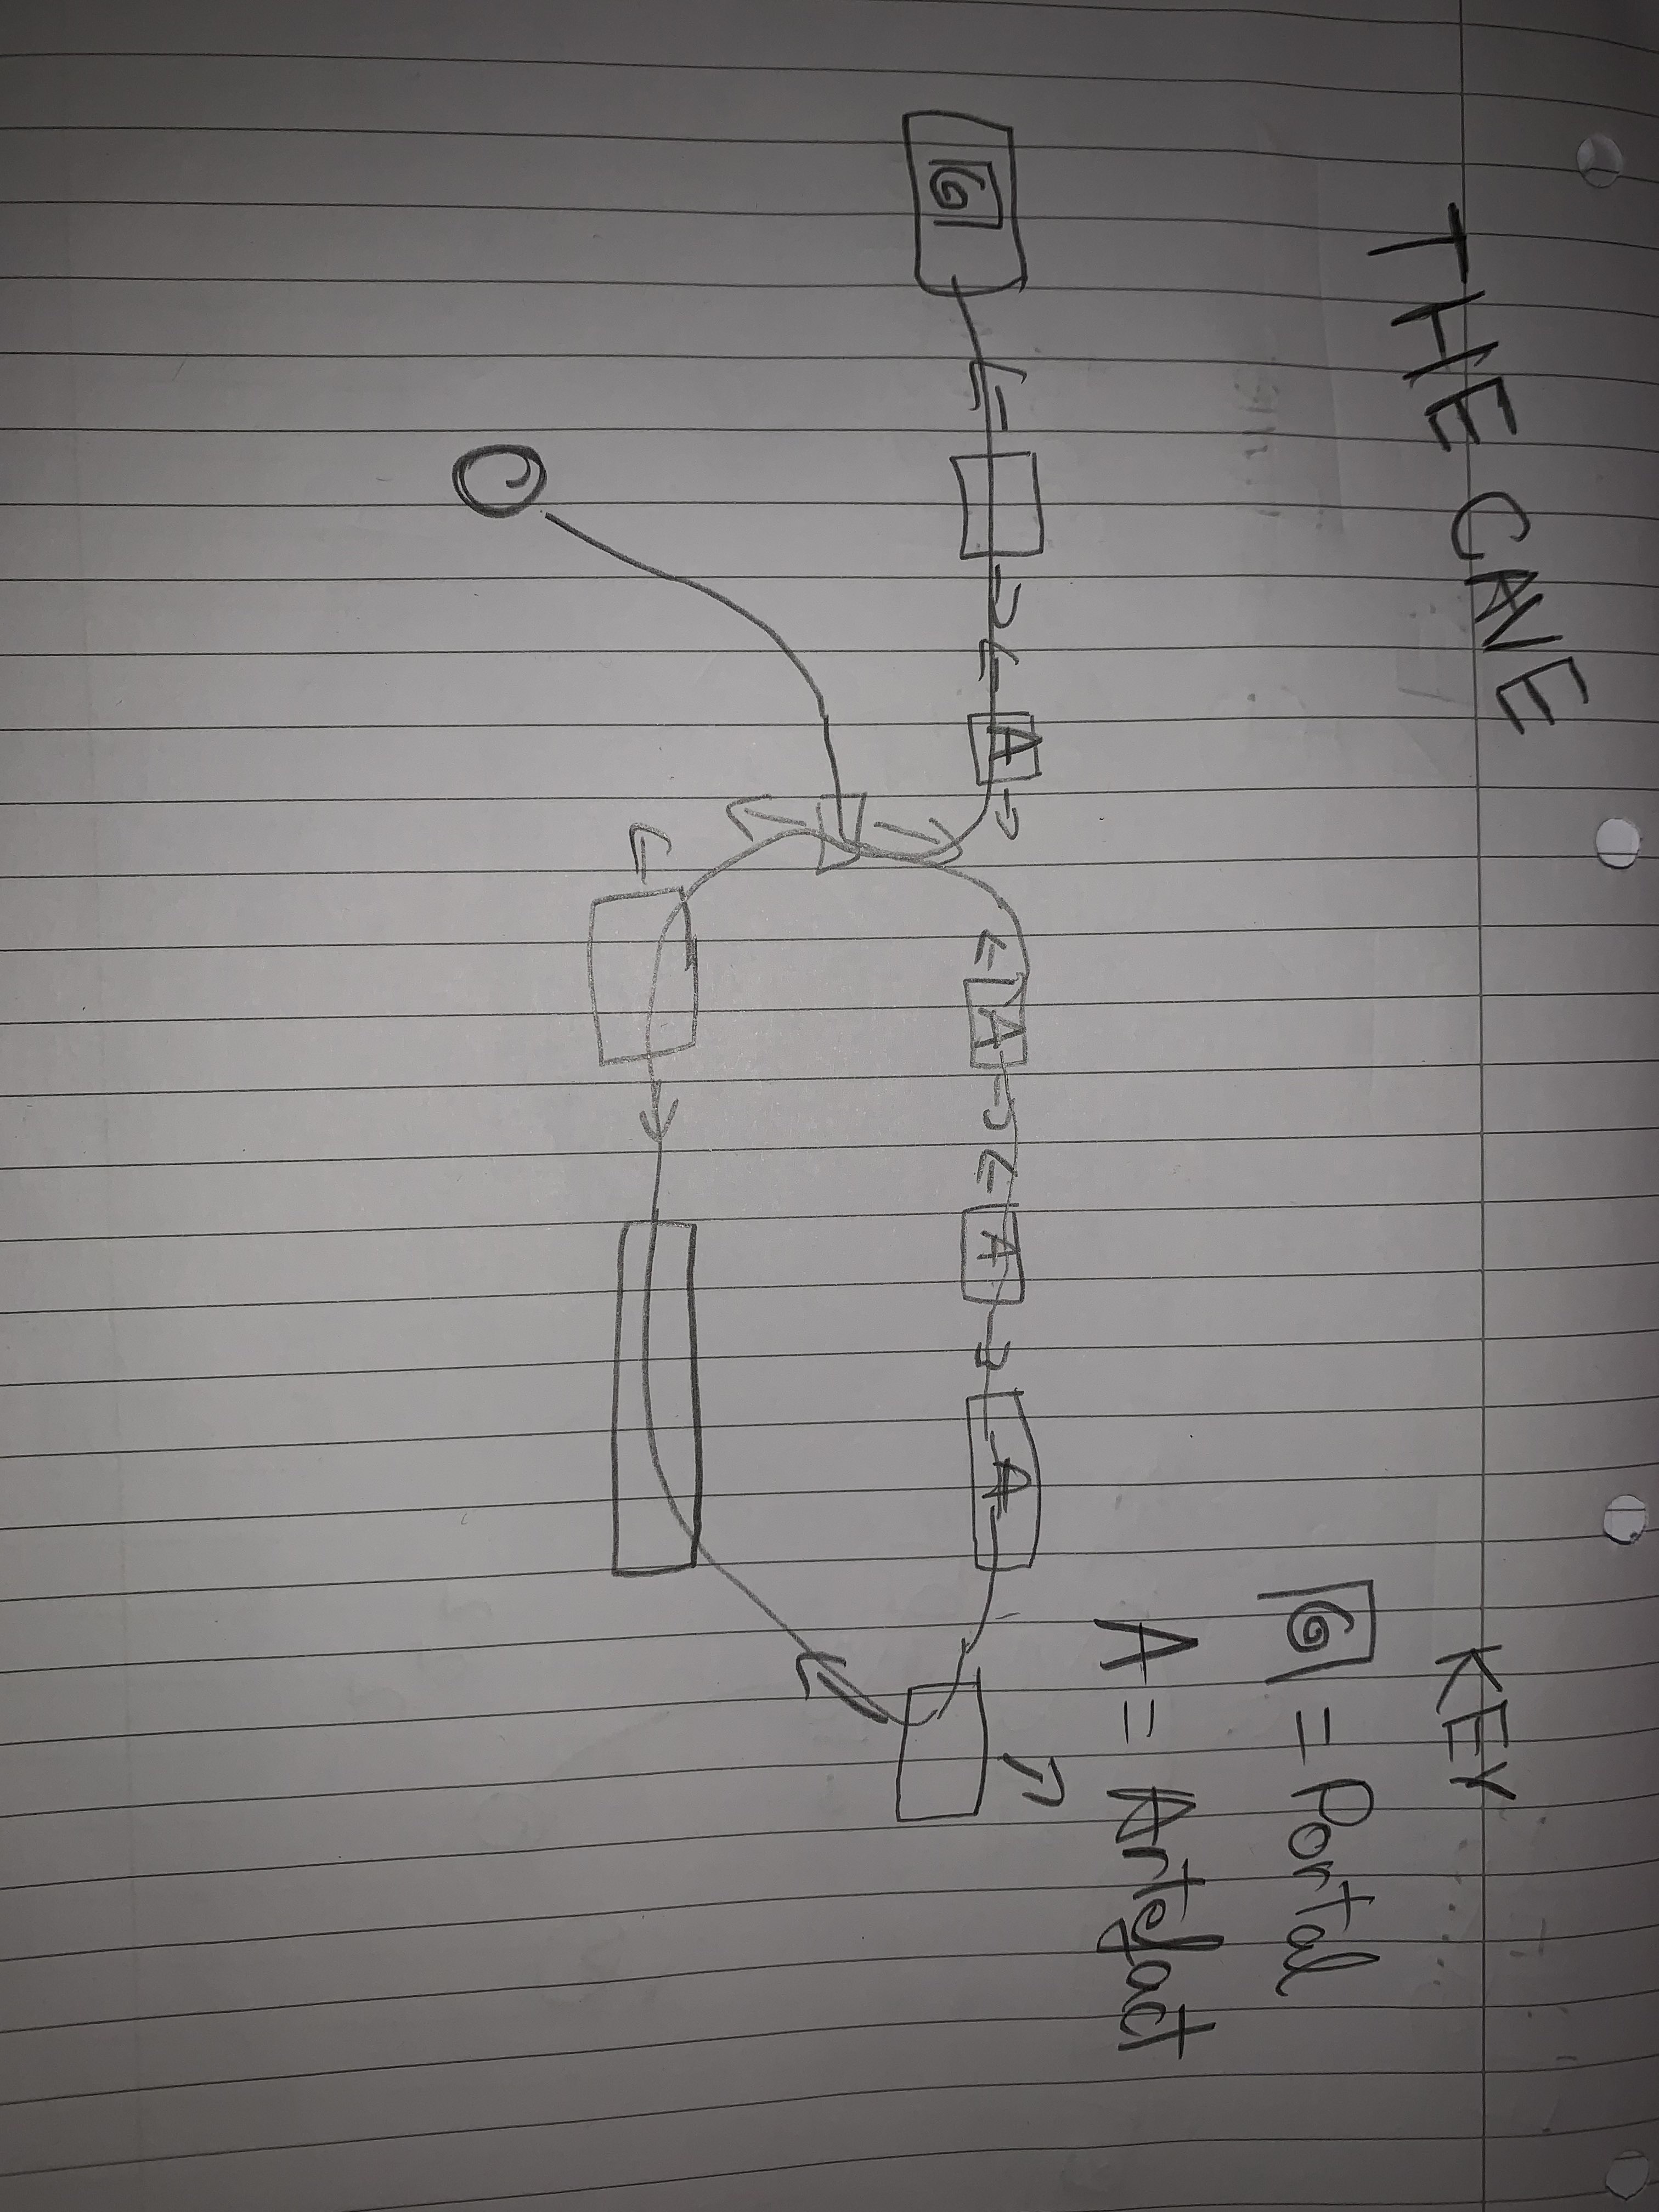 THE CAVE
KEY
= Portal
A = Artefact
A
A
A
A